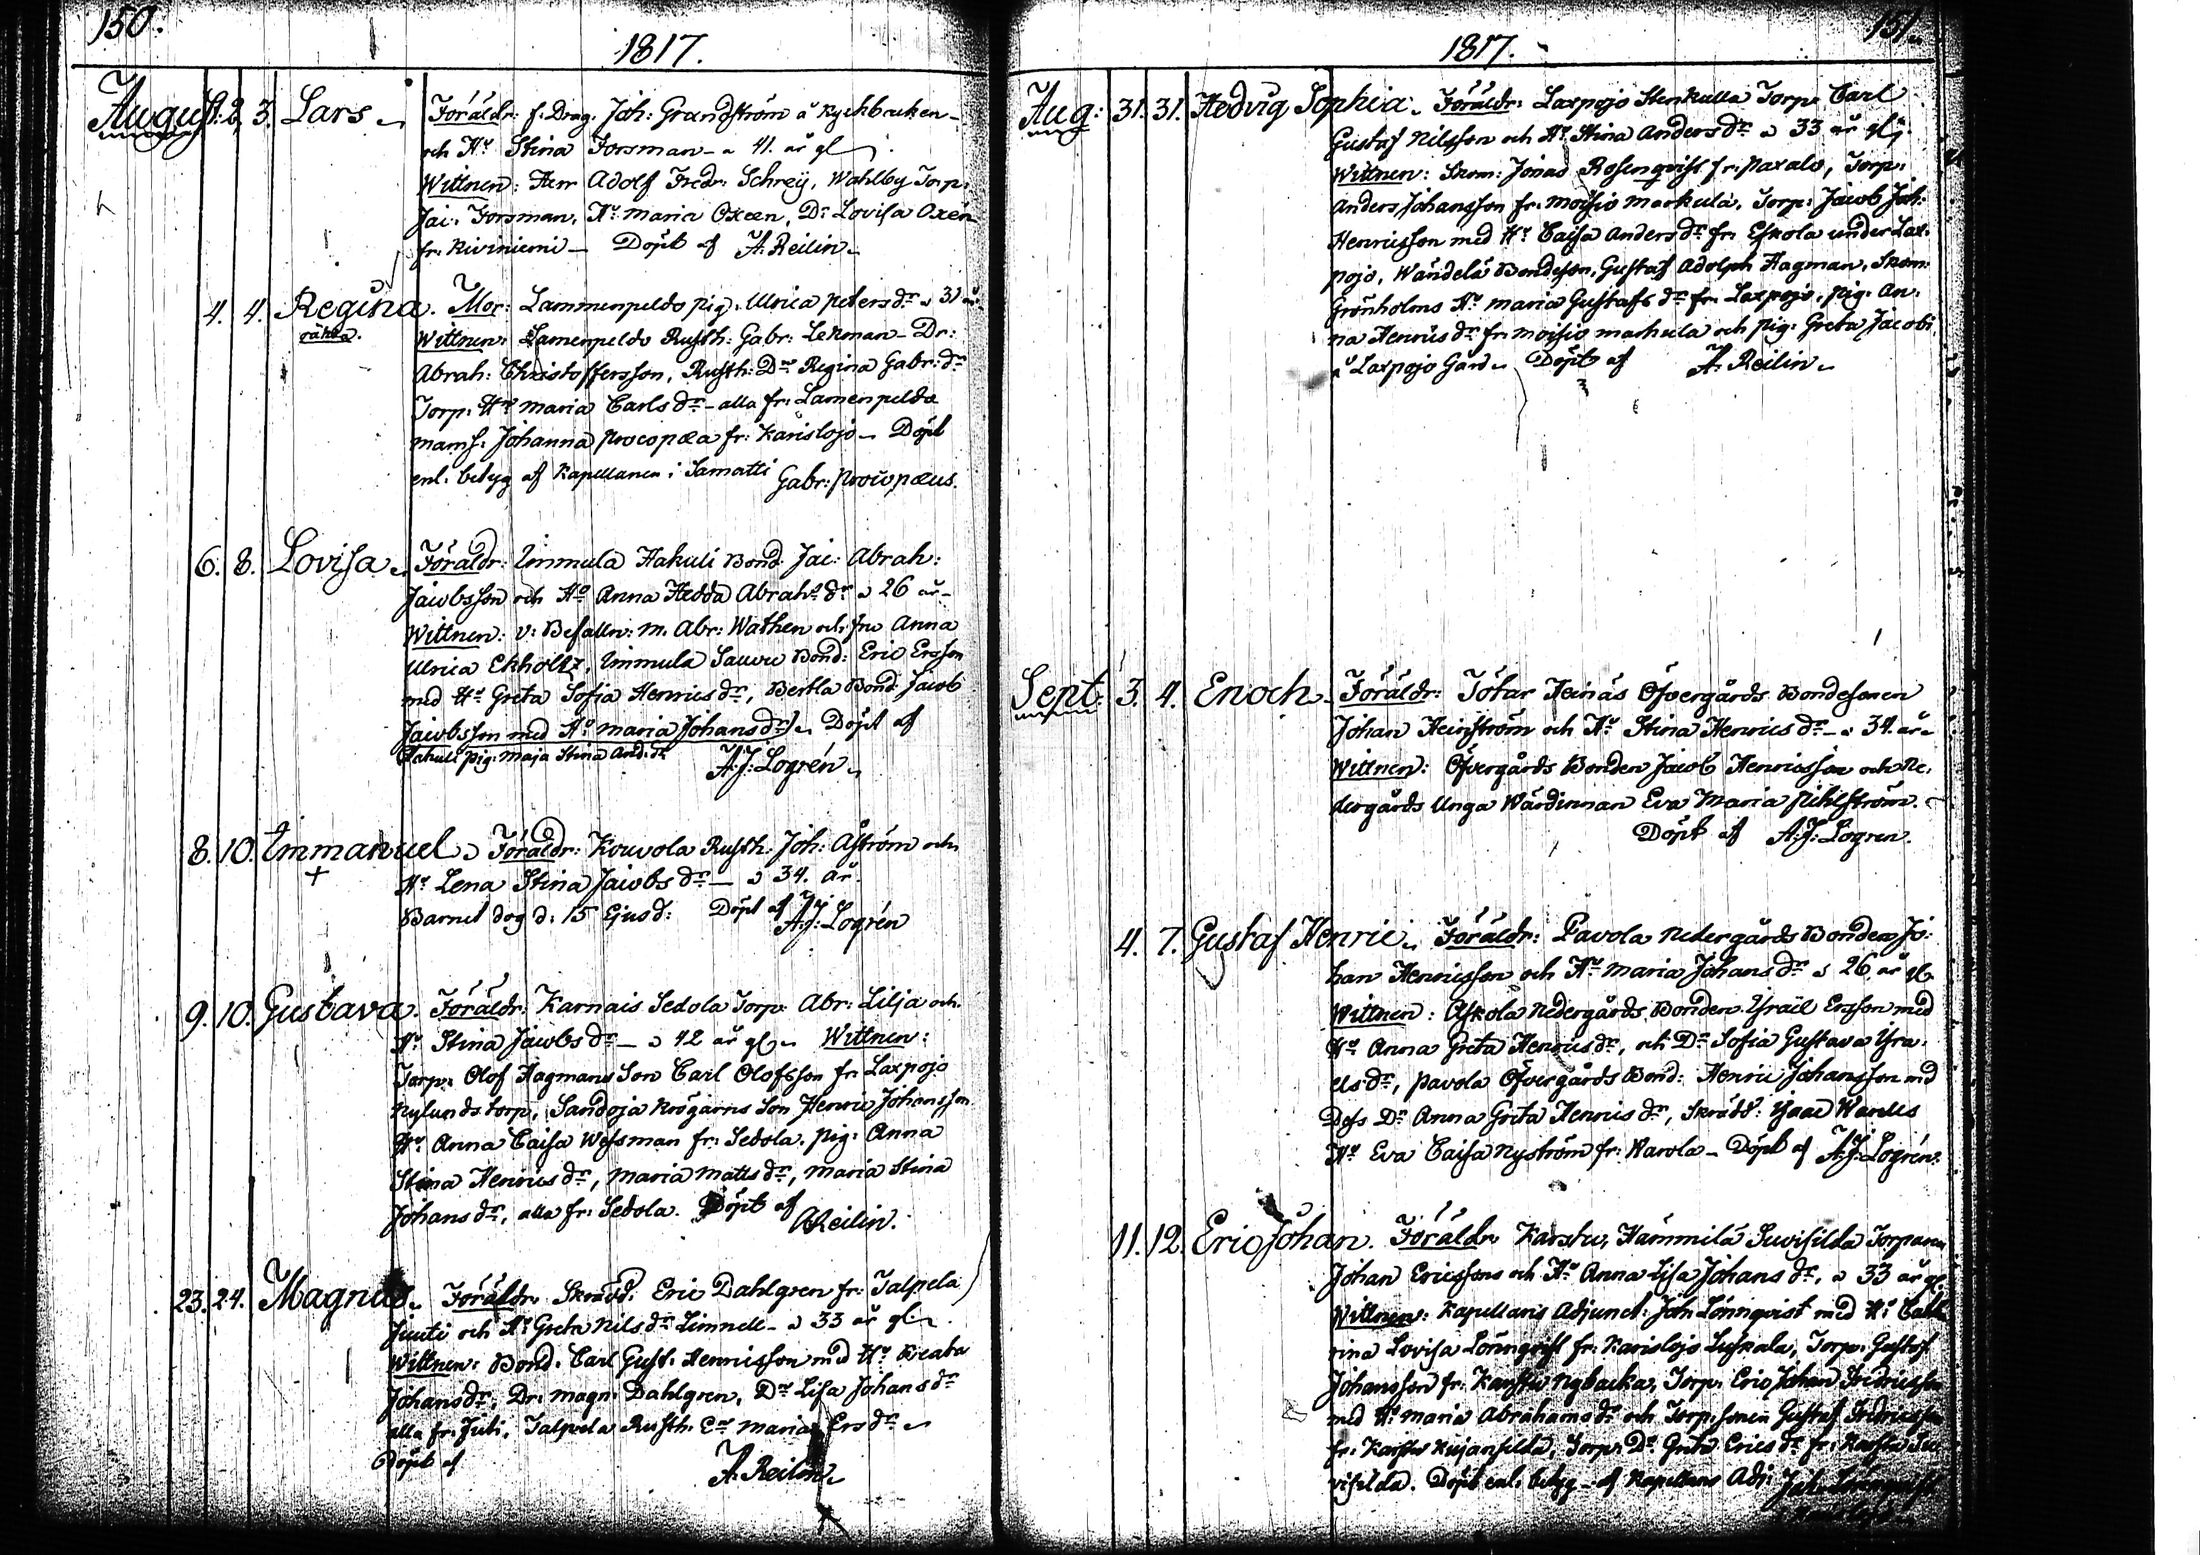 150.
1817.
August. 2. 3. Lars Föräldr: f. Drag. Joh: Grandström å Kyckbacken
och Hu Stina Forsman a 41. år gl
Wittnen: Herr Adolf Fredr: Schreij, Wahlby Torp:
Jac: Forsman, Hu Maria Oxeen, Dr Lovisa Oxén
fr. Kiviniemi Döpt af A. Reilin
4. 4. Regina. Mor: Lammenpeldo pig: Ulrica Peters dr a 31 år
oäkta. Wittnen: Lamenpeldo Rusth: Gabr: Lekman Dr:
Abrah: Christoffersson, Rusth: Dr Regina Gabr: dr
Torp: Hu Maria Carls dr alla fr: Lamenpeldo
Mams: Johanna Procopæa fr: Karislojo Döpt
enl: betyg af Kapellanen i Samatti Gabr: Procopæus.
6. 8. Lovisa Föräldr: Immula Hakuli Bond Jac: Abrah:
Jacobsson och Hu Anna Hedda Abrah: dr a 26 år
Wittnen: v: Befalln: m. Abr: Wathen och fru Anna
Ulrica Ekholtz, Immula Sauvu Bond: Eric Ersson
med Hu Greta Sofia Henrics dr, Bertla Bond Jacob
Jacobsson med Hu Maria Johans dr Döpt af
Hakuli pig: Maja Stina And: dr A:J:Logrén
8. 10. Emmanuel Föräldr: Kouvola Rusth: Joh: Åström och
+ Hu Lena Stina Jacobs dr a 34. år.
Barnet dog d: 15 Ejusd: Döpt af A:J:Logrén
9. 10. Gustava. Föräldr: Karnais Sedola Torp: Abr: Lilja och
Hu Stina Jacobs dr a 42 år gl Wittnen:
Torp: Olof Hagmans Son Carl Olofsson fr: Laxpojo
Nylunds torp, Sandoja Krögarns Son Henric Johansson
Hu Anna Caisa Wessman fr: Sedola, pig: Anna
Stina Henrics dr, Maria Matts dr, Maria Stina
Johans dr, alla fr: Sedola. Döpt af A Reilin.
23. 24. Magnus Föräldr: Skrädd: Eric Dahlgren fr: Talpela
Juuti och Hu Greta Nils dr Limnell a 33 år gl.
Wittnen: Bond: Carl Gust: Henricsson med Hu Beata
Johans dr, Dr: Magn: Dahlgren, Dr Lisa Johans dr
alla fr. Juti, Talpela Rusth: Maria Ers dr
Döpt af A. Reilin
151.
1817.
Aug: 31. 31. Hedvig Sophia Föräldr: Laxpojo Stenkulla Torp: Carl
Gustaf Nilsson och Hu Stina Anders dr a 33 år gl:
Wittnen: Skom: Jonas Rosenqvist fr. Paxalo, Torp:
Anders Johansson fr: Moisio Markula, Torp: Jacob Joh:
Henricsson med Hu Caisa Anders dr fr: Eskola under Lax-
pojo, Wandelä Bondeson, Gustaf Adolph Hagman, Skom:
Grönholms Hu Maria Gustafs dr fr. Laxpojo, pig: An-
na Henrics dr fr: Moisio Markula och pig: Greta Jacobs
å Laxpojo Gård Döpt af A. Reilin
Sept: 3. 4. Enoch Föräldr: Tötar Heinäs Öfvergårds Bondesonen
Johan Heinström och Hu Stina Henrics dr a 34. år
Wittnen: Öfvergårds Bonden Jacob Henricsson och Ne-
dergårds Unga Wärdinnan Eva Maria Pihlström.
Döpt af A:J:Logren.
4. 7. Gustaf Henric Föräldr: Pavola Nedergårds Bonden Jo-
han Henricsson och Hu Maria Johans dr a 26 år gl.
Wittnen: Askola Nedergårds Bonden Israël Ersson med
Hu Anna Greta Henrics dr, och Dr Sofia Gustava Isra-
els dr, Pavola Öfvergårds Bond: Henric Johansson med
Dess Dr Anna Greta Henrics dr, Skrädd: Isaac
Hu Eva Caisa Nyström fr: Döpt af A:J:Logrén.
11. 12. Eric Johan. Föräldr: Karstu, Hämmilä Suvisilda Torparen
Johan Ericssons och Hu Anna Lisa Johans dr, a 33 år gl
Wittnen: Kapellans Adjunct: Joh: Lönnqvist med Hu Catha
rina Lovisa Lönnqvist fr: Karislojo Torp: Gustaf
Johansson fr: Karstu Nybacka, Torp: Eric Johan Fredricsson
med Hu Maria Abrahams dr och Torp:sonen Gustaf Fredricsson
fr: Karstu Kujansilda, Torp: Dr Greta Erics dr fr: Karstu Su
visilda. Döpt enl: betyg af Kapellans Adj: Joh: Lönnqvist